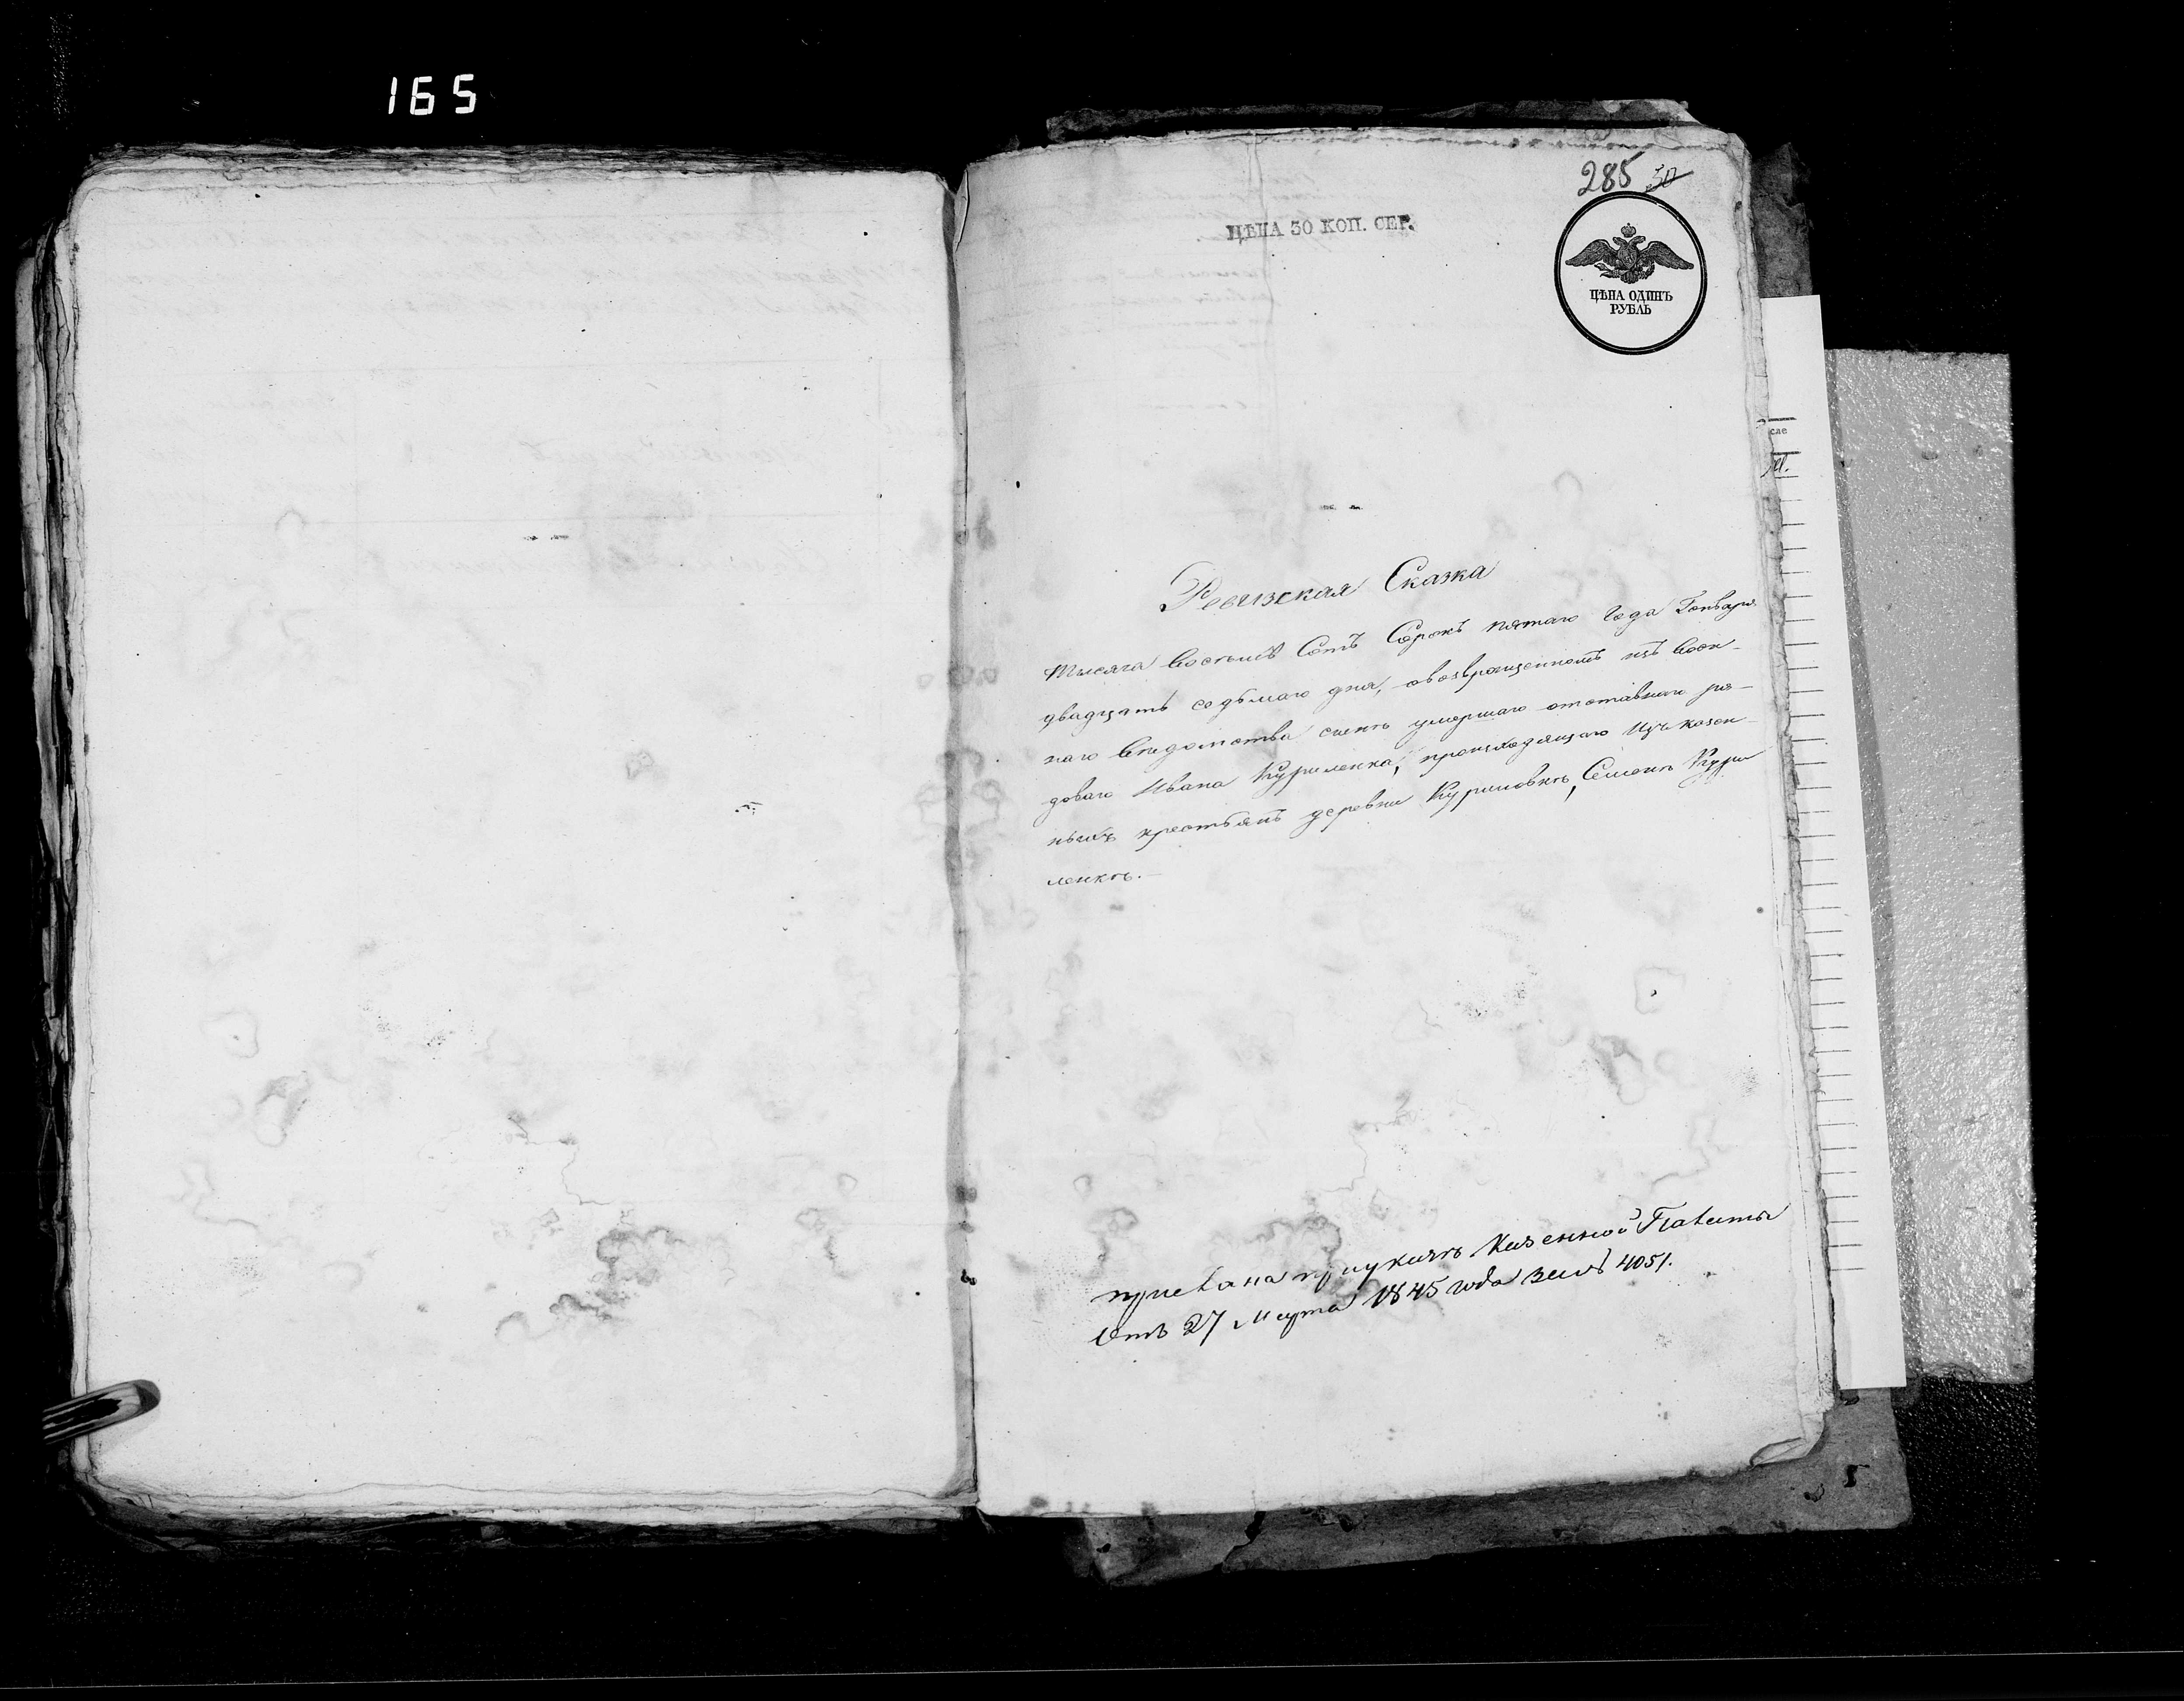 165
285 30
ЦѢНА 30 КОП. СЕР.
ЦѢНА ОДИНЪ
РУБЛЬ
Ревизская Сказка
тысяча восемь Сотъ Сорокъ пятаго года Генваря
двадцать седьмаго дня, о возвращенномъ изъ воен-
наго вѣдомства сынѣ умершаго отставнаго ря-
доваго Ивана Куриленка, происходящаго изъ казен-
ныхъ крестьянъ деревни Куриловки, Семенѣ Кури
ленкѣ.—
прислана при указѣ Казенной Палаты
Отъ 27 Марта 1845 года за № 4051.
5